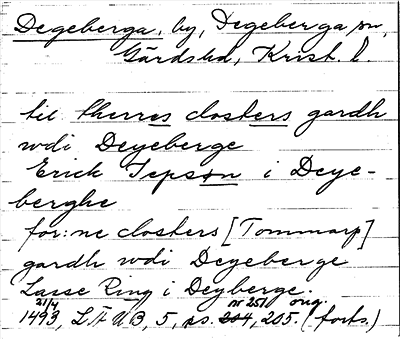 Degeberga, by, Degeberga sn,
Gärdsha, Krist. l.
til therres closters gardh
wdi Deyeberge
Erick Jepson i Deye-
berghe
for:ne closters [Tommarp]
gardh wdi Deyeberge
Lasse Ring i Deyberge.
21/4 nr 251 orig.
1493, LÄUB, 5, s. 204, 205. (forts.)